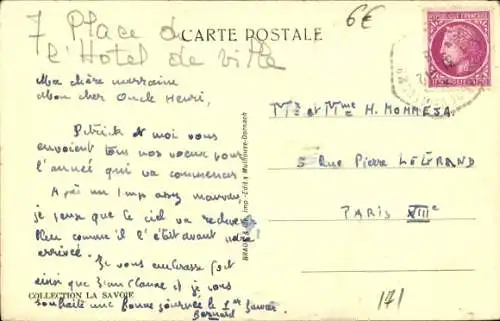 7 Place de
l'Hôtel de ville
CARTE POSTALE
6€
REPUBLIQUE FRANÇAISE
Ma chère marraine
Mon cher Oncle Henri,
Patrick et moi vous
envoient tous nos voeux pour
l'année qui va commencer
Après un temps assez mauvais
je pense que le ciel va redevenir
bleu comme il l'était avant notre
arrivée.
Je vous embrasse fort
ainsi que Jean Claude et je vous
souhaite une bonne journée le 1er Janvier
Bernard
COLLECTION LA SAVOIE
BRAUN & Cie Imp.-Edit's Mulhouse-Dornach
Mr et Mme H. MOMMEJA
5 Rue Pierre LEGRAND
PARIS VIIIe
171